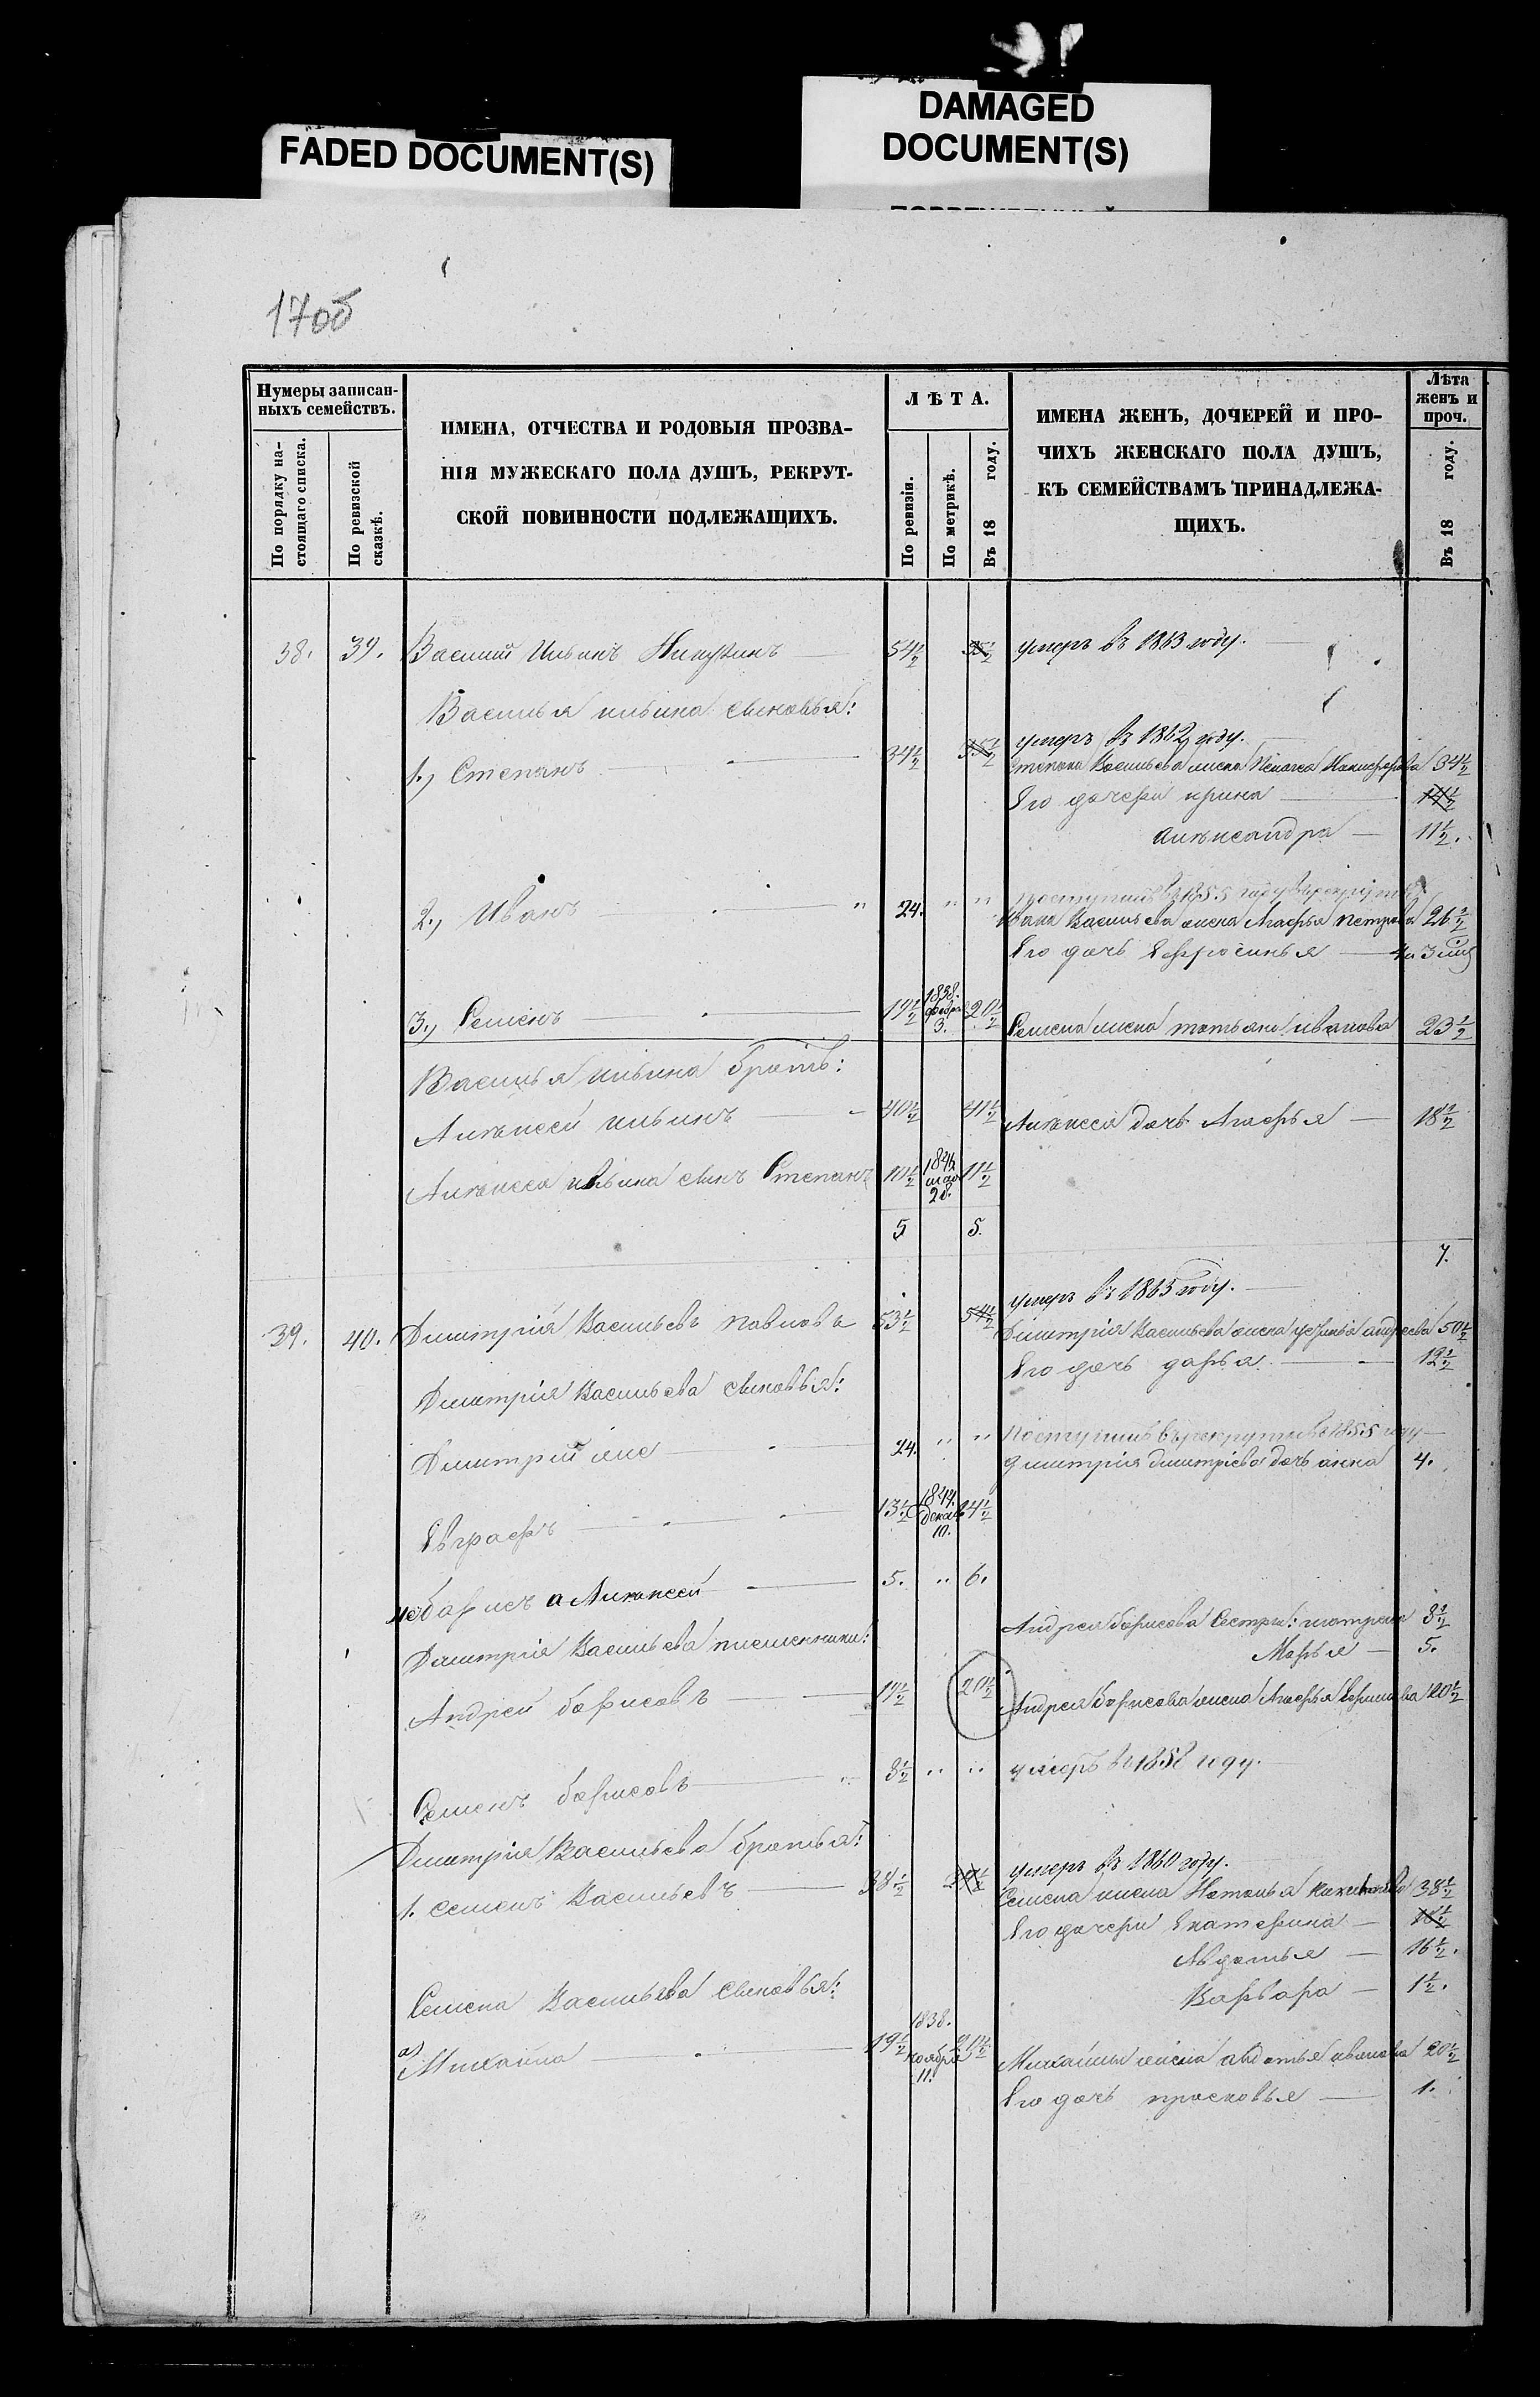 FADED DOCUMENT(S)
DAMAGED
DOCUMENT(S)
17об
Нумеры записан-
ныхъ семействъ.
По порядку на-
стоящаго списка.
По ревизской
сказкѣ.
ИМЕНА, ОТЧЕСТВА И РОДОВЫЯ ПРОЗВА-
НІЯ МУЖЕСКАГО ПОЛА ДУШЪ, РЕКРУТ-
СКОЙ ПОВИННОСТИ ПОДЛЕЖАЩИХЪ.
ЛѢТА.
По ревизіи.
По метрикѣ.
Въ 18 году.
ИМЕНА ЖЕНЪ, ДОЧЕРЕЙ И ПРО-
ЧИХЪ ЖЕНСКАГО ПОЛА ДУШЪ,
КЪ СЕМЕЙСТВАМЪ ПРИНАДЛЕЖА-
ЩИХЪ.
Лѣта
женъ и
проч.
Въ 18 году.
38. 39. Василий Ильинъ 54½ 55½ умеръ въ 1863 году.
Василья ильина сыновья:
1., Степанъ 34½ 35½ умеръ въ 1862 году.
Степана Васильева жена Никифорова 34½
Его дочери ирина 14½
александра 11½.
2., Иванъ " 24. " " поступилъ въ 1855 году въ рекруты
Ивана Васильева жена Агафья петрова 26½
Его дочь Ефросинья 4 и 3 мц
3., Семенъ 19½ 1838. февр 3. 20½ Семена жена татьяна иванова 23½
Василья ильина братъ:
Алексей ильинъ 40½ 41½ Алексея дочь Агафья 18½
Алексея ильина сынъ Степанъ 10½ 11½
5 5.
7.
39. 40. Димитрий Васильевъ павловъ 53½ 54½ умеръ въ 1863 году.
Димитрия Васильева жена андреева 50½
Его дочь дарья 12½
Димитрия Васильева сыновья:
Димитрий 24. " " поступилъ въ рекруты въ 1855 году
димитрия димитриева дочь анна 4.
Евграфъ 13½ 1844. декаб 10. 14½
борисъ а Алексей 5. " 6.
Андрея борисова сестры: матрена 8½
Марья 5.
Димитрия Васильева племянники:
Андрей борисовъ 19½ 20½ Андрея борисова жена Агафья 20½
Семенъ борисовъ " 8½ " " умеръ въ 1858 году.
Димитрия Васильева братья:
1. семенъ Васильевъ 38½ 39½ умеръ въ 1860 году.
Семена жена Наталья 38½
Его дочери Екатерина 18½
Авдотья 16½.
Варвара 1½.
Семена Васильева сыновья:
а) Михаила 19½ 1838. ноября 11. 21½ Михайлы жена авдотья иванова 20½
Его дочь прасковья 1.